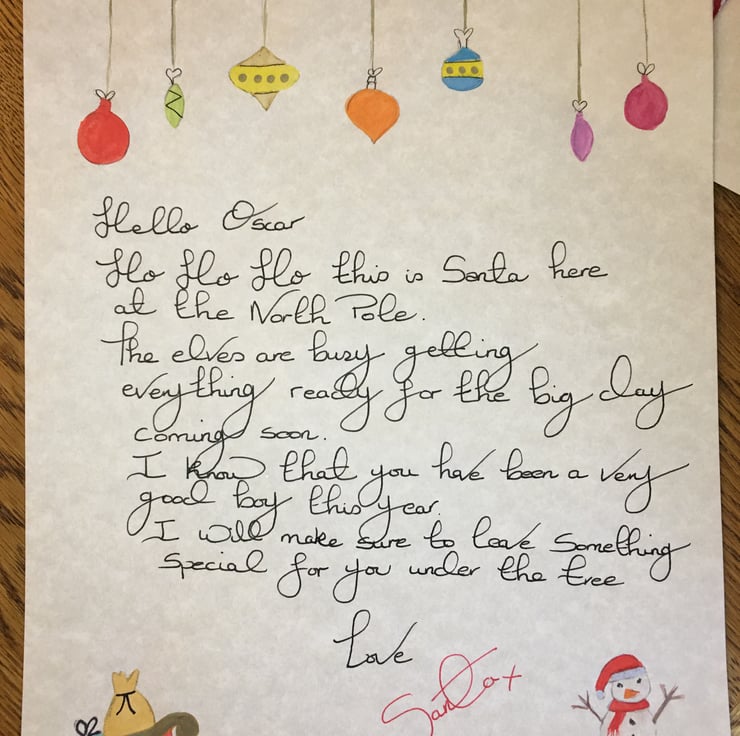 Hello Oscar
Ho Ho Ho this is Santa here
at the North Pole.
The elves are busy getting
everything ready for the big day
coming soon.
I know that you have been a very
good boy this year.
I will make sure to leave Something
Special for you under the tree
Love
Santa x